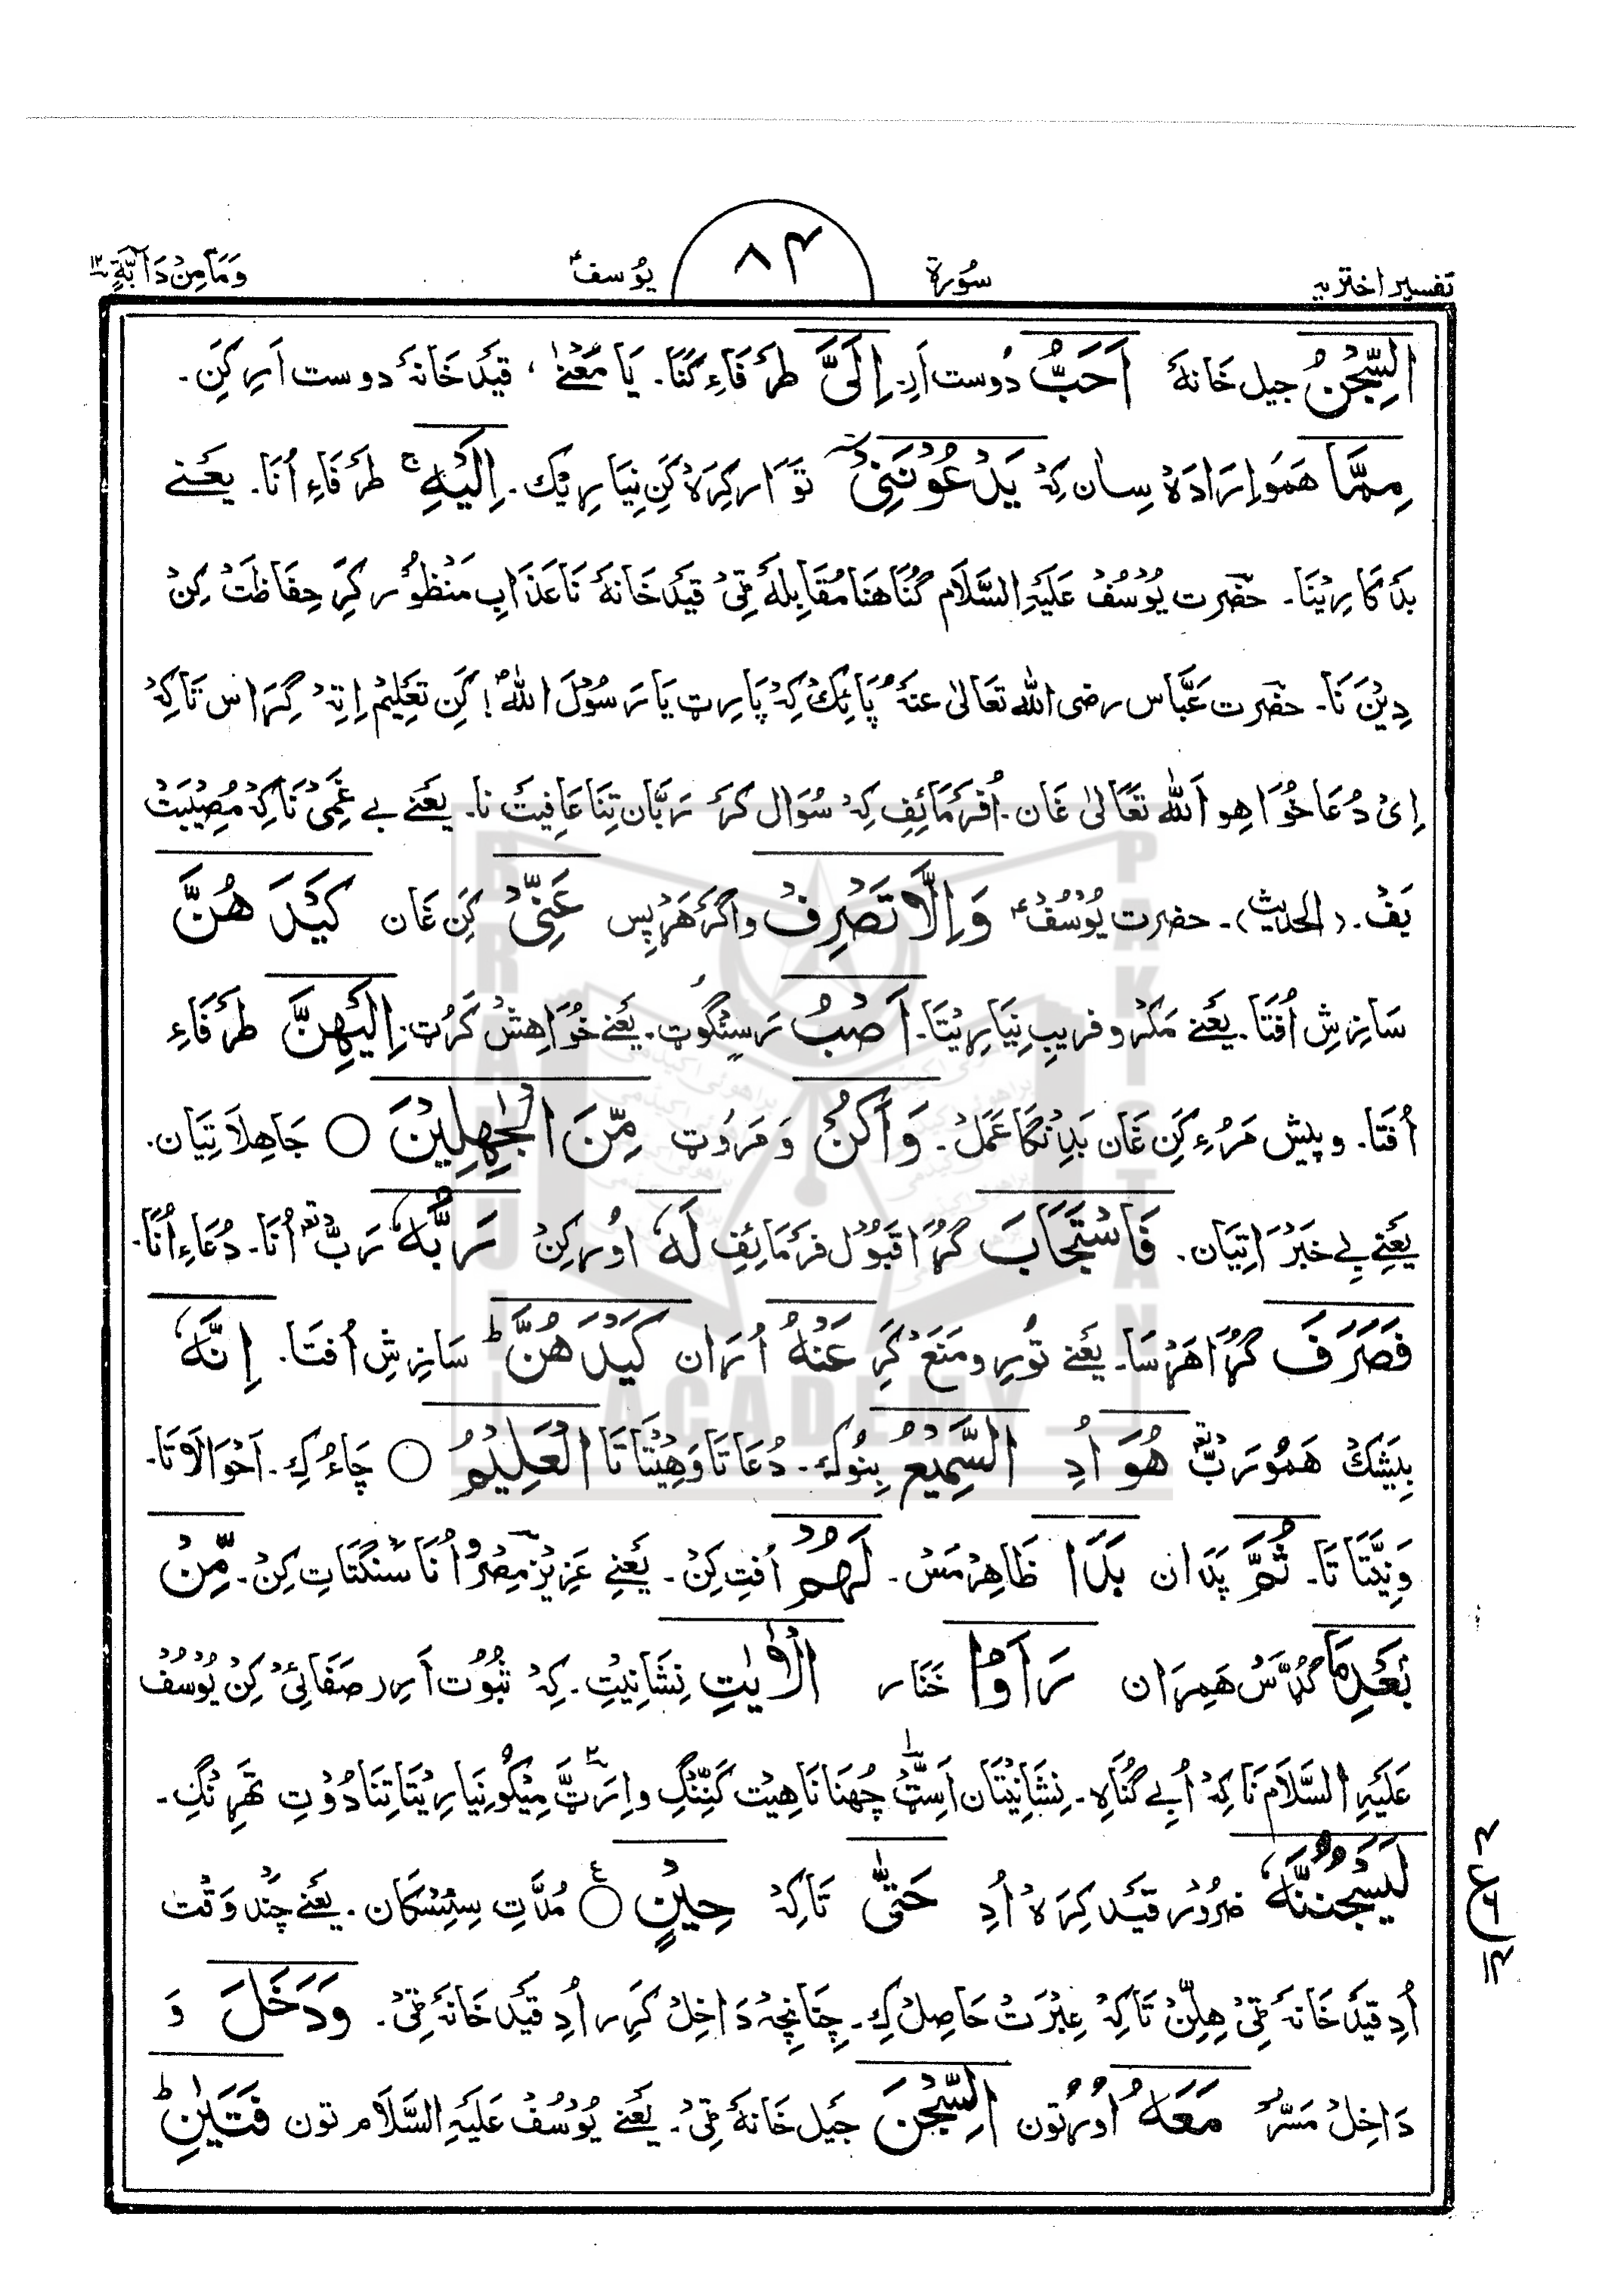 تفسیر اختریہ سُورۃ ۸۴ یُوسف وَمَا مِنْ دَآبَّةٍ ۱۲
السِّجْنُ جیل خَانهٔ اَحَبُّ دُوست اَرِ۔ اِلَیَّ طرَفَاءِ کَنَا۔ یَا مَعْنیٰ ، قیَد خَانهٔ دوست اَرِ کَنِ۔
مِمَّا هَمُو اِرَادَهْ سِتان کِہْ یَدْعُوْنَنِیْٓ تَوَار کِرَهْ کَنِ نِیَارِیک۔ اِلَیْهِ ۚ طرَفَاءِ اُنَا۔ یعَنے
بدَکَارِیْنَا۔ حضرت یُوْسُفْ عَلَیْہِ السَّلَام گُنَاهنَا مُقَابِلهٔ ٹِیْ قیَد خَانهٔ نَا عَذَابِ مَنْظُوْر کرِّ حِفَاظَتْ کِنْ
دِیْنَ نَا۔ حضرت عَبَّاس رضی اللہ تعَالیٰ عنهٔ پَائِکْ کِہْ پَارِٹ یَا رَسُوْلَ اللہ! کَنِ تعَلِیْم اِتِهْ گِرَاس تَاکِہْ
اِیْ دُعَا خُوَاهِو اَللہ تعَالیٰ غَان۔ اُفرَمَائِفِ کِہْ سُوَال کرَ رَبَّان تِنَا عَافِیَت نَا۔ یعَنے بے غَمِیْ نَا کِہْ مُصِیْبَتْ
یَفْ۔ (الحدیث)۔ حضرت یُوْسُفْ ؑ وَاِلَّا تَصْرِفْ وَاگرَ هَرپِس عَنِّیْ کَنِ غَان کَیْدَ هُنَّ
سَازِشِ اُفتَا۔ یعَنے مَکْر و فریبِ نِیَارِیْتَا۔ اَصْبُ رَسِنْگوٹ۔ یعَنے خُوَاهِشْ کَرُٹ۔ اِلَیْهِنَّ طرَفَاءِ
اُفتَا۔ و پیش مَرُءِ کَنِ غَان بَدِ اَنگَا عَمَلْ۔ وَاَکُنْ وَ مَرُوٹ مِّنَ الْجٰهِلِیْنَ ○ جَاهِلَاتِیَان۔
یعَنے بے خبَرْ اتِیَان۔ فَاسْتَجَابَ گُڑا قبُوْل فرَمَائِفِ لَهٗ اوُرکِنْ رَبُّهٗ رَبُّ اُنَا۔ دُعَاءِ اُنَا۔
فَصَرَفَ گُڑا هَرْسَا۔ یعَنے تُوْرِ و مَنَعْ کرِّ عَنْهُ اُرَان کَیْدَهُنَّ ؕ سَازِشِ اُفتَا۔ اِنَّهٗ
بِیَشکْ هَمُو رَبُّ هُوَ اُدِ السَّمِیْعُ بِنُوْکِ۔ دُعَاتَا وَهِیْتَاتَا الْعَلِیْمُ ○ چَاءُکِ۔ اَحْوَالَاتَا۔
وَنِیَّتَاتَا۔ ثُمَّ پَدَان بَدَا ظَاهِرْ مَسْ۔ لَهُمْ اُفتِ کِنْ۔ یعَنے عَزِیْزِ مِصْر وُ اُنَا سَنْگتَاتِ کِنْ۔ مِّنْ
بَعْدِ مَا گُدَّسْ هَمِرَان رَاَوُا خَنَار الْاٰیٰتِ نِشَانِیْتِ۔ کِہْ ثبُوْت اَرِر صَفَائِیْ کِنْ یُوْسُفْ
عَلَیْہِ السَّلَام نَا کِہْ اُ بے گُنَاہِ۔ نِشَانِیْتَان اَسِٹ چُھنَا نَا هِیْت کَنِّنْگِ و اِرَٹَّ مِیْکُو نِیَارِیْتَا تِنَا دُوْتِ تھَرِنْگِ۔
لَیَسْجُنُنَّهٗ ضرُوْر قیَد کِرَهْ اُدِ حَتّٰی تَاکِہْ حِیْنٍ ○ ع مُدَّتِ سِیْتِسْکَان۔ یعَنے چَنْد وَقْت
اُدِ قیَد خَانهٔ ٹِیْ هِلِّنْ تَاکِہْ عِبْرَتْ حَاصِلْ کِ۔ چنَانچِہْ دَاخِلْ کَرِر اُدِ قیَد خَانهٔ ٹِیْ۔ وَدَخَلَ وَ
دَاخِلْ مَسُّر مَعَهُ اوُرتُون السِّجْنَ جَیل خَانهٔ ٹِیْ۔ یعَنے یُوْسُفْ عَلَیْہِ السَّلَام تون فَتَیٰنِ ؕ
BRAHUI ACADEMY PAKISTAN